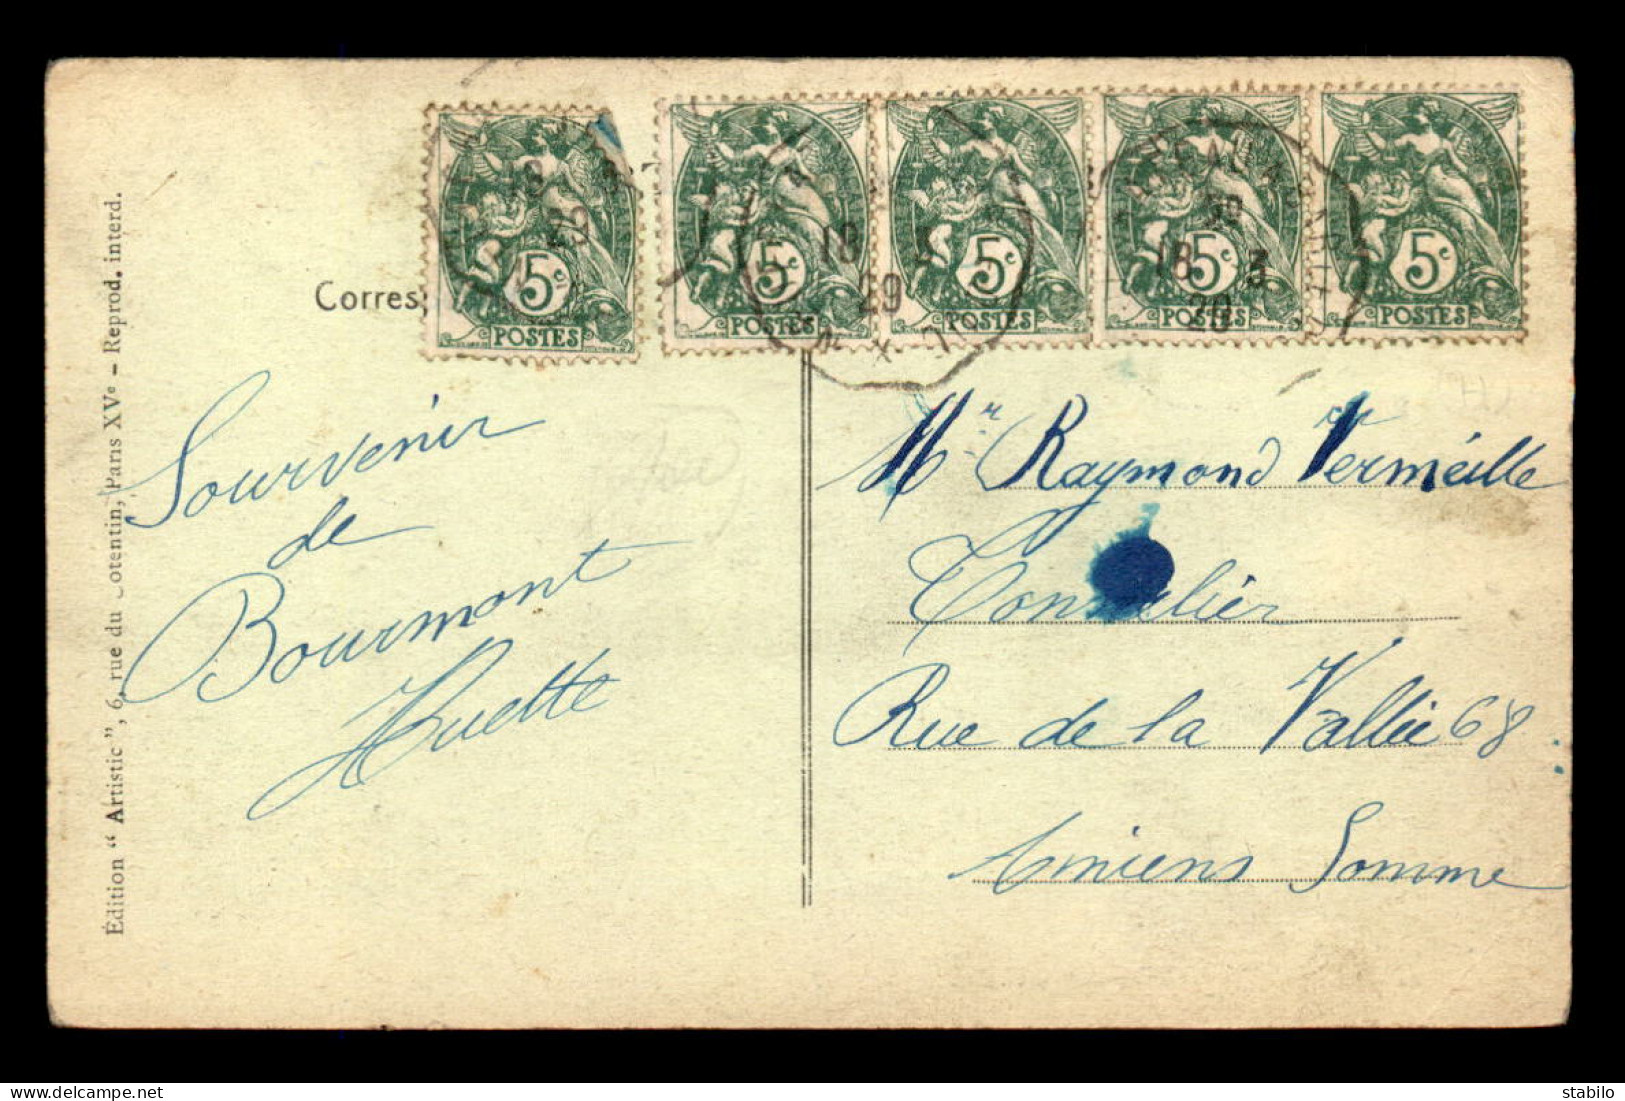 Corres
5c
POSTES
5c
POSTES
5c
POSTES
5c
POSTES
5c
POSTES
18
29
18 3
Souvenir
de
Bourmont
Huette
Mr Raymond Vermeille
Rue de la Vallée 68
Amiens Somme
Édition “ Artistic ”, 6, rue du Cotentin, Paris XVe – Reprod. interd.
stabilo